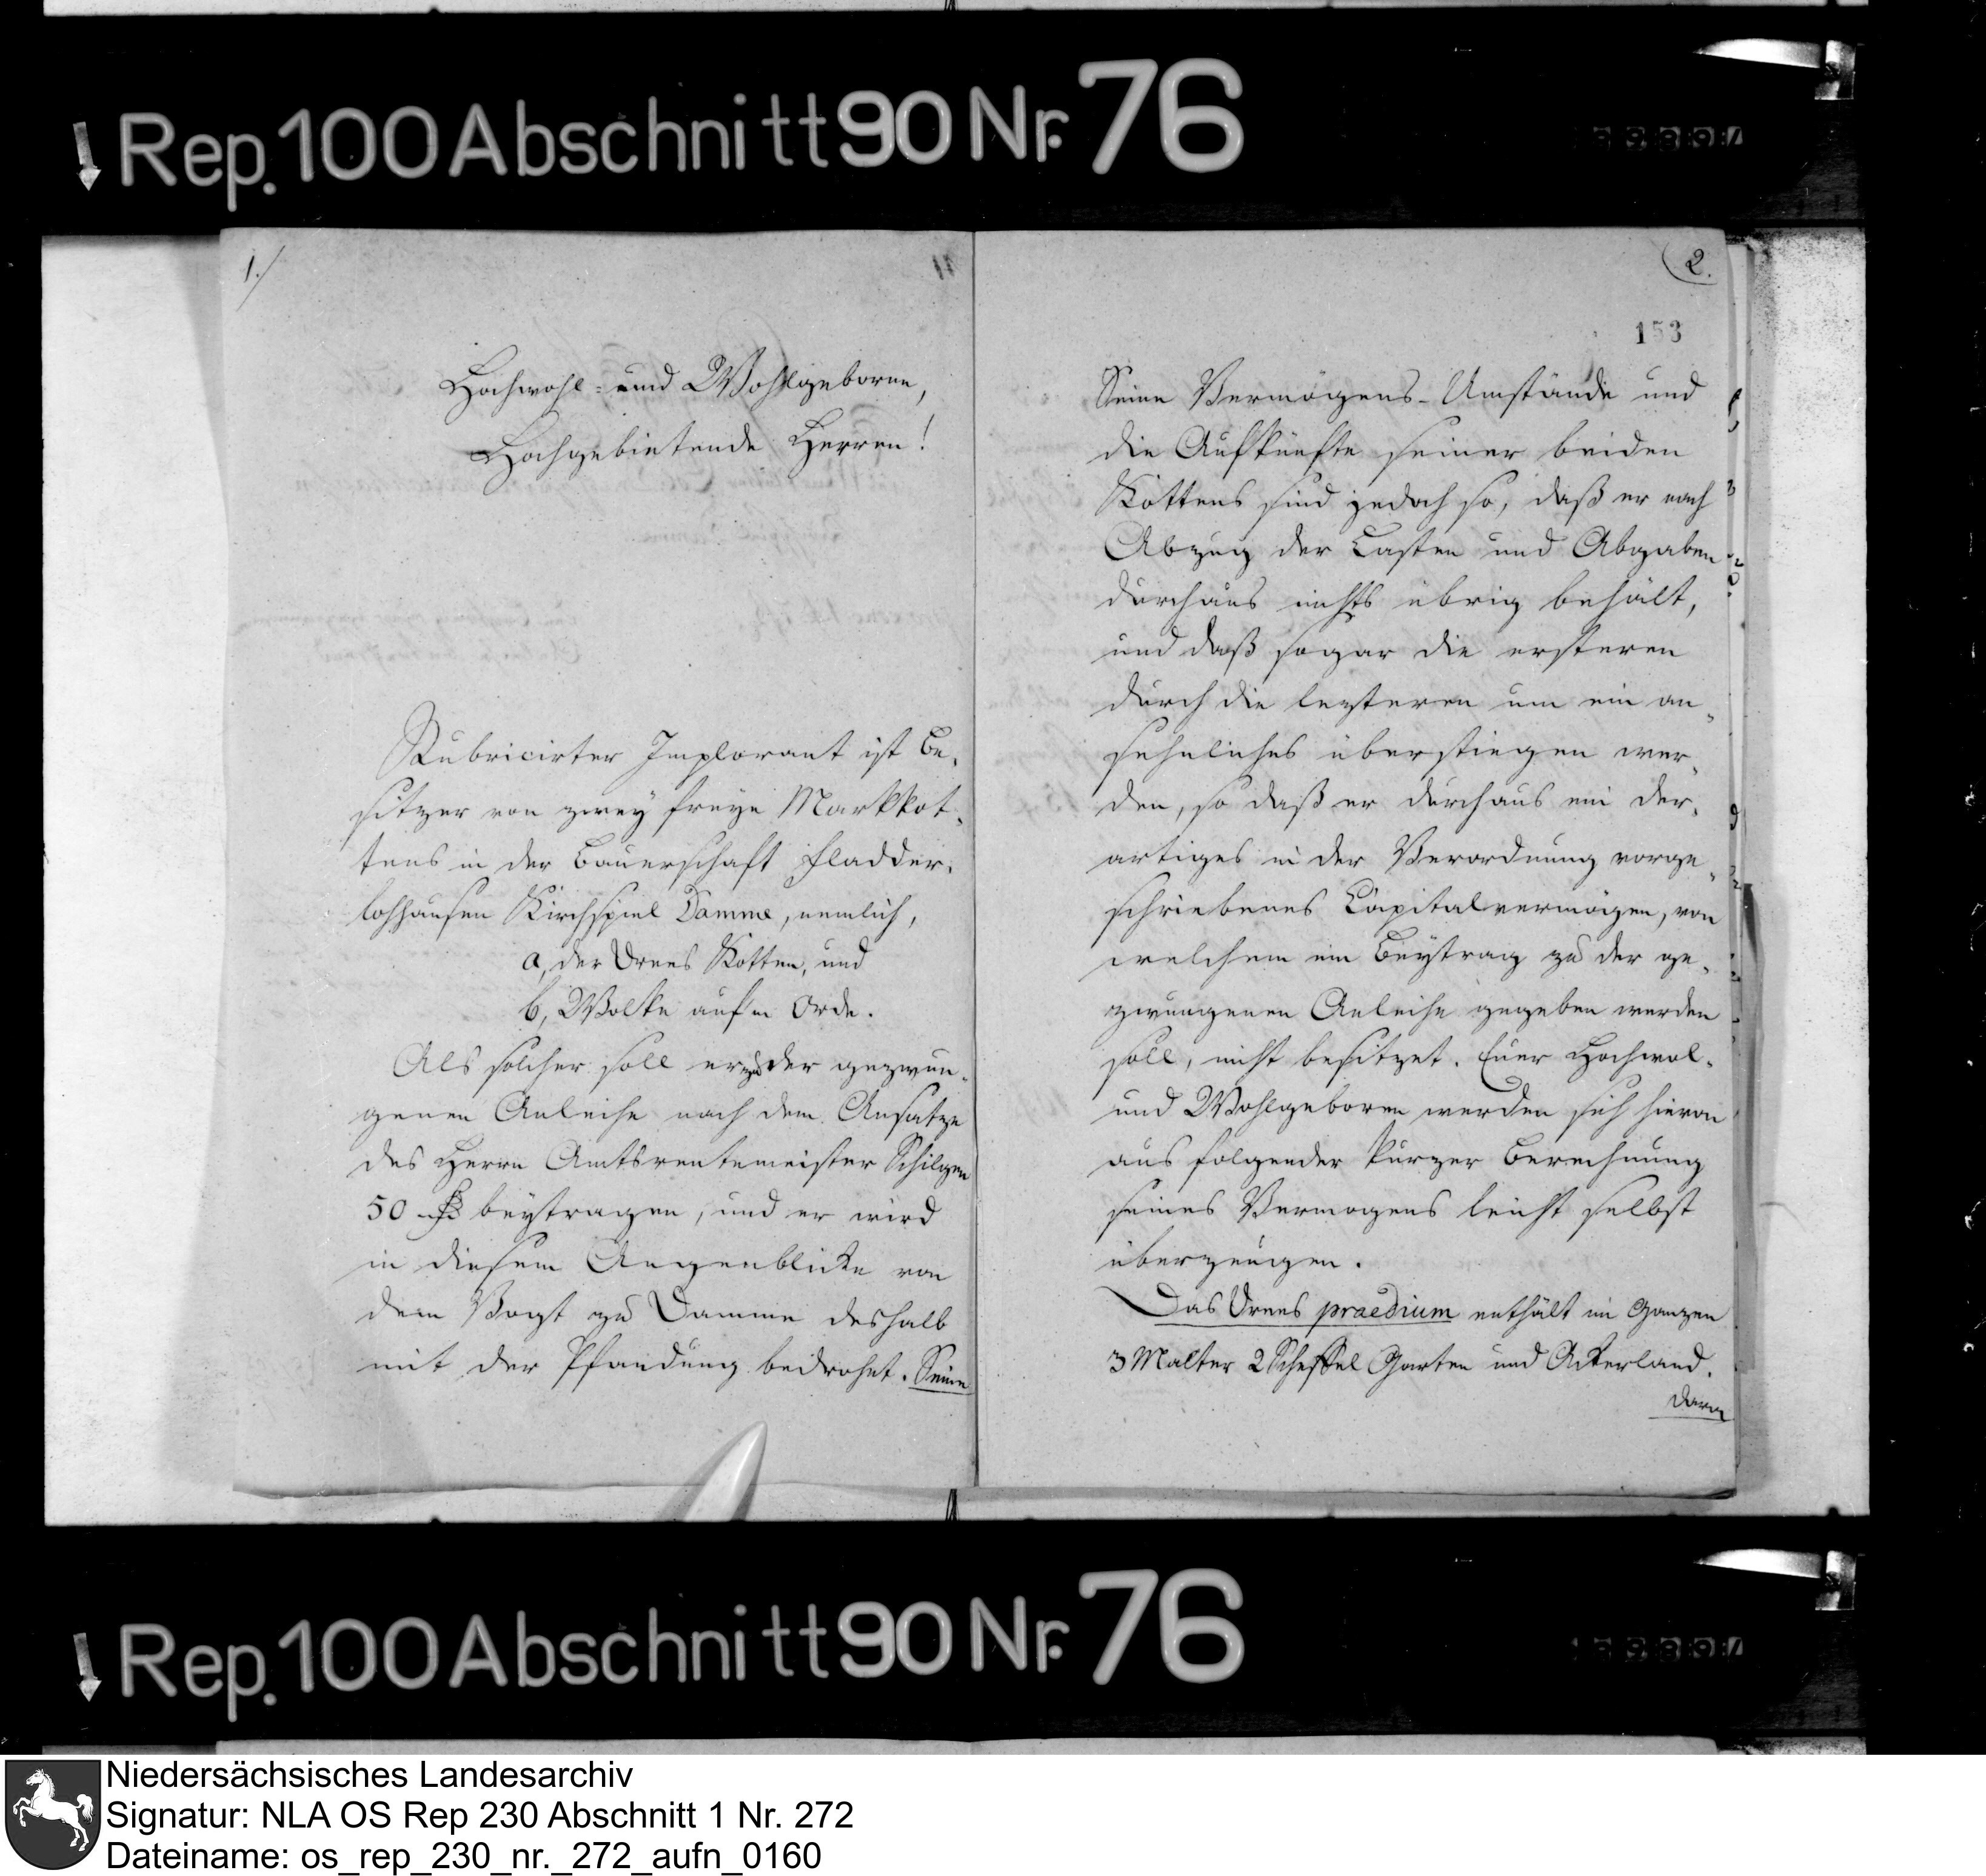 Rep. 100 Abschnitt 90 Nr. 76
1./
Hochwohl- und Wohlgeborne,
Hochgebietende Herren!
Rubricirter Implorant ist Be-
sitzer von zwey freye Markkot-
tens in der Bauerschaft Fladder-
lohhausen Kirchspiel Damme, nemlich,
a, der Drees Kotten, und
b, Wolke auf'm Orde.
Als solcher soll er zu der gezwun-
genen Anleihe nach dem Ansatze
des Herrn Amtsrentemeister Schilgen
50 beytragen, und er wird
in diesem Augenblicke von
dem Vogt zu Damme deshalb
mit der Pfandung bedrohet. Seine
2.
153
Seine Vermögens-Umstände und
die Aufkünfte seiner beiden
Kottens sind jedoch so, daß er nach
Abzug der Lasten und Abgaben
durchaus nichts übrig behält,
und daß sogar die ersteren
durch die lezteren um ein an-
sehnliches überstiegen wer-
den, so daß er durchaus ein der-
artiges in der Verordnung vorge-
schriebenes Capitalvermögen, von
welchem ein Beytrag zu der ge-
zwungenen Anleihe gegeben werden
soll, nicht besitzet. Euer Hochwol-
und Wohlgeboren werden sich hievon
aus folgender kurzer Berechnung
seines Vermogens leicht selbst
überzeugen.
Das Drees praedium enthält im Ganzen
3 Malter 2 Scheffel Garten und Ackerland.
Rep. 100 Abschnitt 90 Nr. 76
Niedersächsisches Landesarchiv
Signatur: NLA OS Rep 230 Abschnitt 1 Nr. 272
Dateiname: os_rep_230_nr._272_aufn_0160